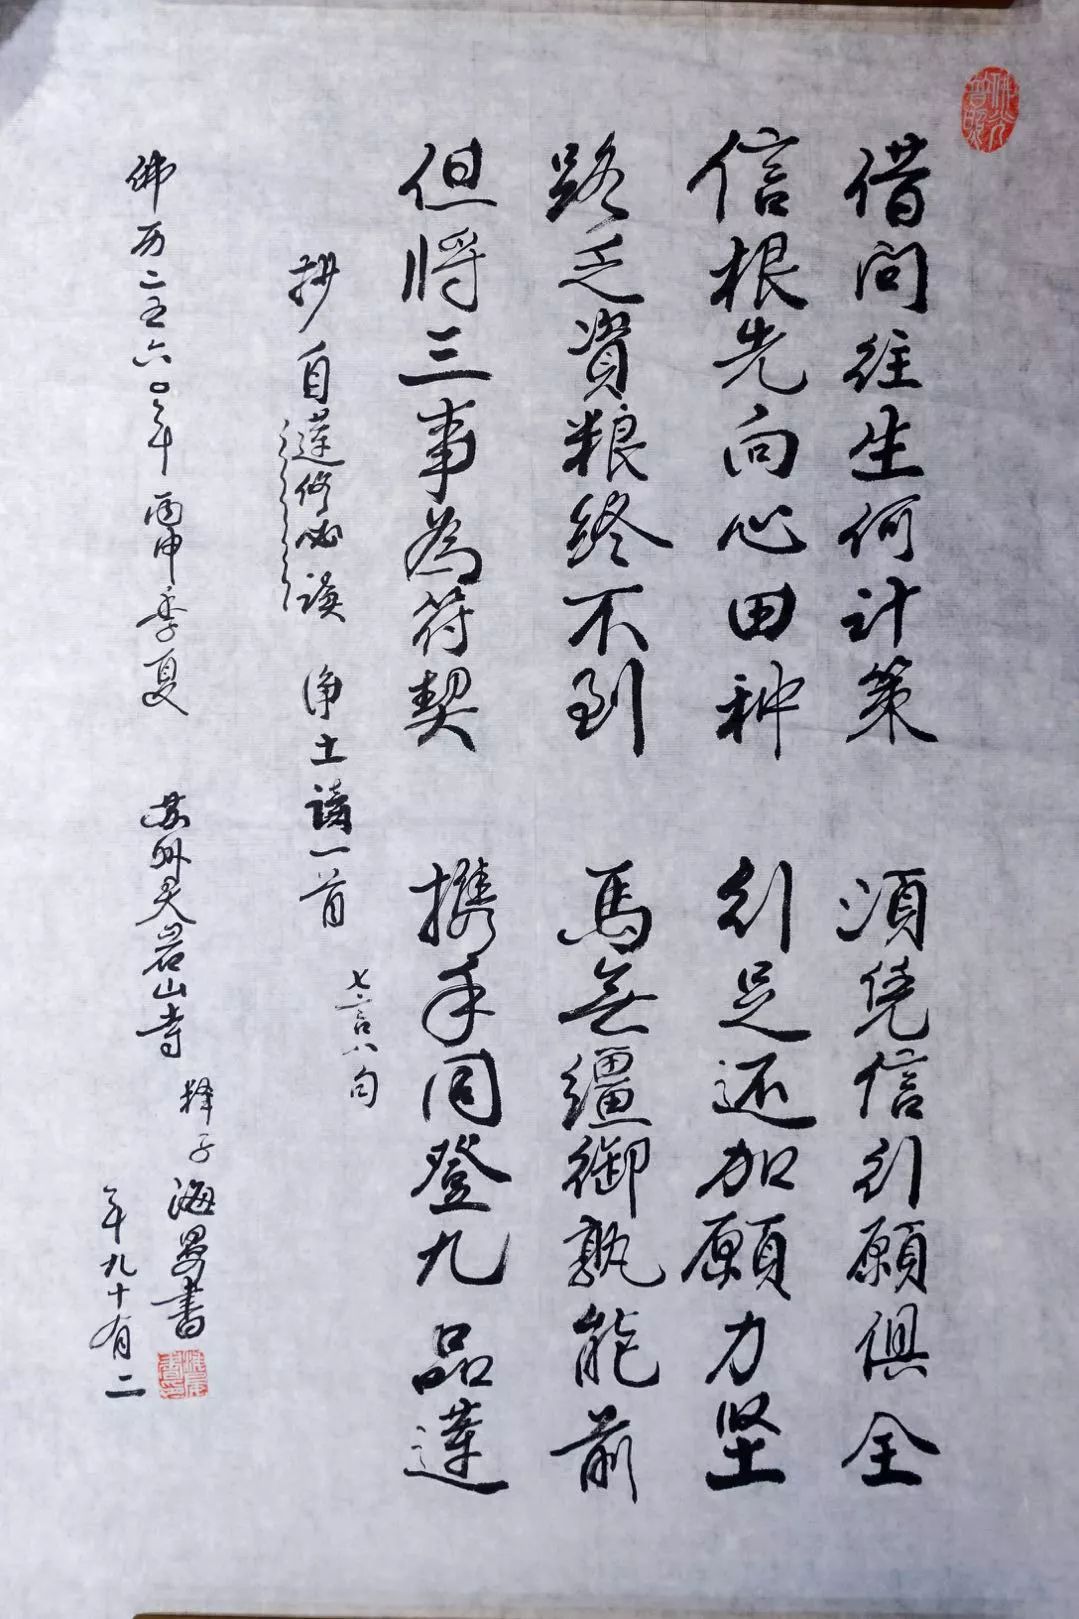 佛光普照
借问往生何计策 須凭信行願俱全
信根先向心田种 行足还加願力坚
路乏資粮终不到 馬無缰御孰能前
但将三事為符契 携手同登九品蓮
抄自蓮修必读 净土一首 七言八句
佛历二五六〇年 丙申季夏 苏州灵岩山寺 释子海曼書
年九十有二